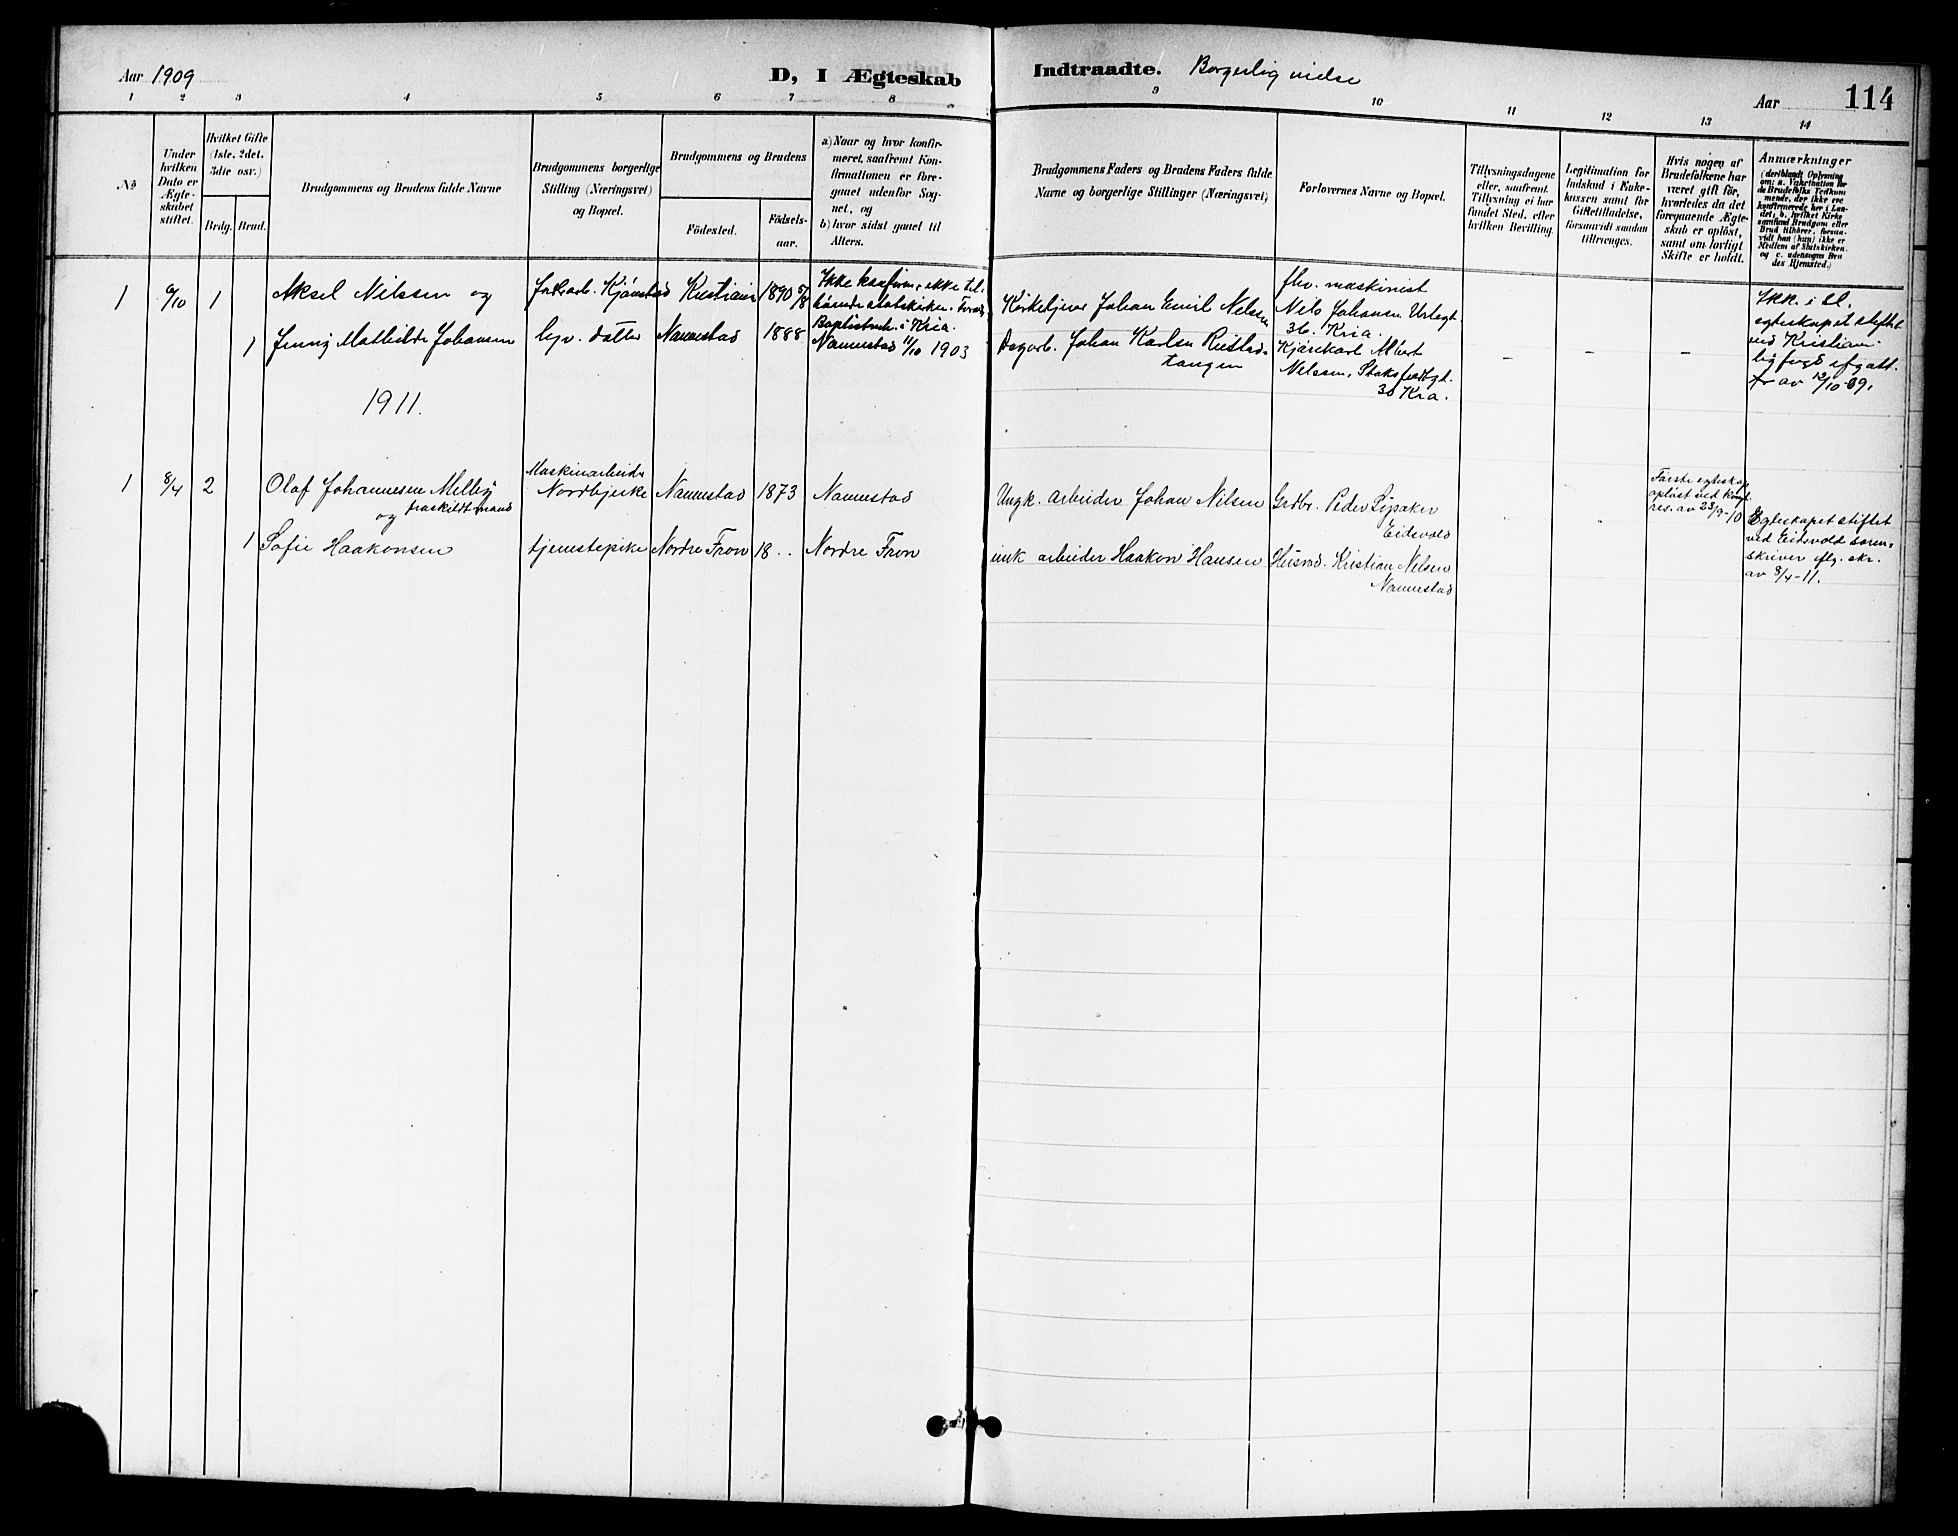 Aar 1909
D, I Ægteskab Indtraadte. Borgerlig vielse
Aar 114
1 2 3 4 5 6 7 8 9 10 11 12 13 14
No
Under
hvilken
Dato er
Ægte-
skabet
stiftet.
Hvilket Gifte
(1ste, 2det,
3die osv.)
Brdg. Brud.
Brudgommens og Brudens fulde Navne
Brudgommens borgerlige
Stilling (Næringsvei)
og Bopæl.
Brudgommens og Brudens
Födested.
Födsels-
aar.
a) Naar og hvor konfir-
meret, saafremt Kon-
firmationen er fore-
gaaet udenfor Sog-
net, og
b) hvor sidst gaaet til
Alters.
Brudgommens Faders og Brudens Faders fulde
Navne og borgerlige Stillinger (Næringsvei)
Forlovernes Navne og Bopæl.
Tillysningsdagene
eller, saafremt
Tillysning ei har
fundet Sted, efter
hvilken Bevilling.
Legitimation for
Indskud i Enke-
kassen samt for
Giftetilladelse,
forsaavidt saadan
tiltrænges.
Hvis nogen af
Brudefolkene har
været gift før,
hvorledes da det
foregaaende Ægte-
skab er opløst,
samt om lovligt
Skifte er holdt.
Anmærkninger
(deriblandt Oplysning
om: a. Vaksination for
de Brudefolks Vedkom
mende, der ikke ere
konfirmerede her i Lan-
det, b. hvilket Kirke
samfund Brudgom eller
Brud tilhører, forsaa-
vidt han (hun) ikke er
Medlem af Statskirken
og c. udensogns Bru
des Hjemsted.)
1 9/10 1 Aksel Nilssen og
Kjönstad Kristiania 1890 5/8
Ikke konfirm., ikke til.
Baptistmk. i Kria.
Kirketjener Johan Emil Nilssen
fhv. maskinist
Nils Johansen
36. Kria.
1 Jenny Mathilde Johansen
datter Nannestad 1888 Nannestad 11/10 1903
Dagarb. Johan Karlsen Rustad-
tangen
Albert
Nilssen,
30 Kria.
– – –
egteskapet stiftet
ved Kristian-
av 12/10-09.
1911.
1 8/4 2 Olaf Johannesen Melby
fraskildt mand
og
Maskinarbeider
Nordbjerke Nannestad 1873 Nannestad
Ungk. arbeider Johan Nilsen
Grdbr. Peder
Eidsvold
Første egteskap
opløst ved kongl.
res. av 23/9-10
1 Sofie Haakonsen
tjenestepike Nordre Fron 18 .. Nordre Fron
arbeider Haakon Hansen
Kristian Nilsen
Nannestad
Egteskapet stiftet
ved Eidsvold soren-
skriver iflg. skr.
av 8/4-11.